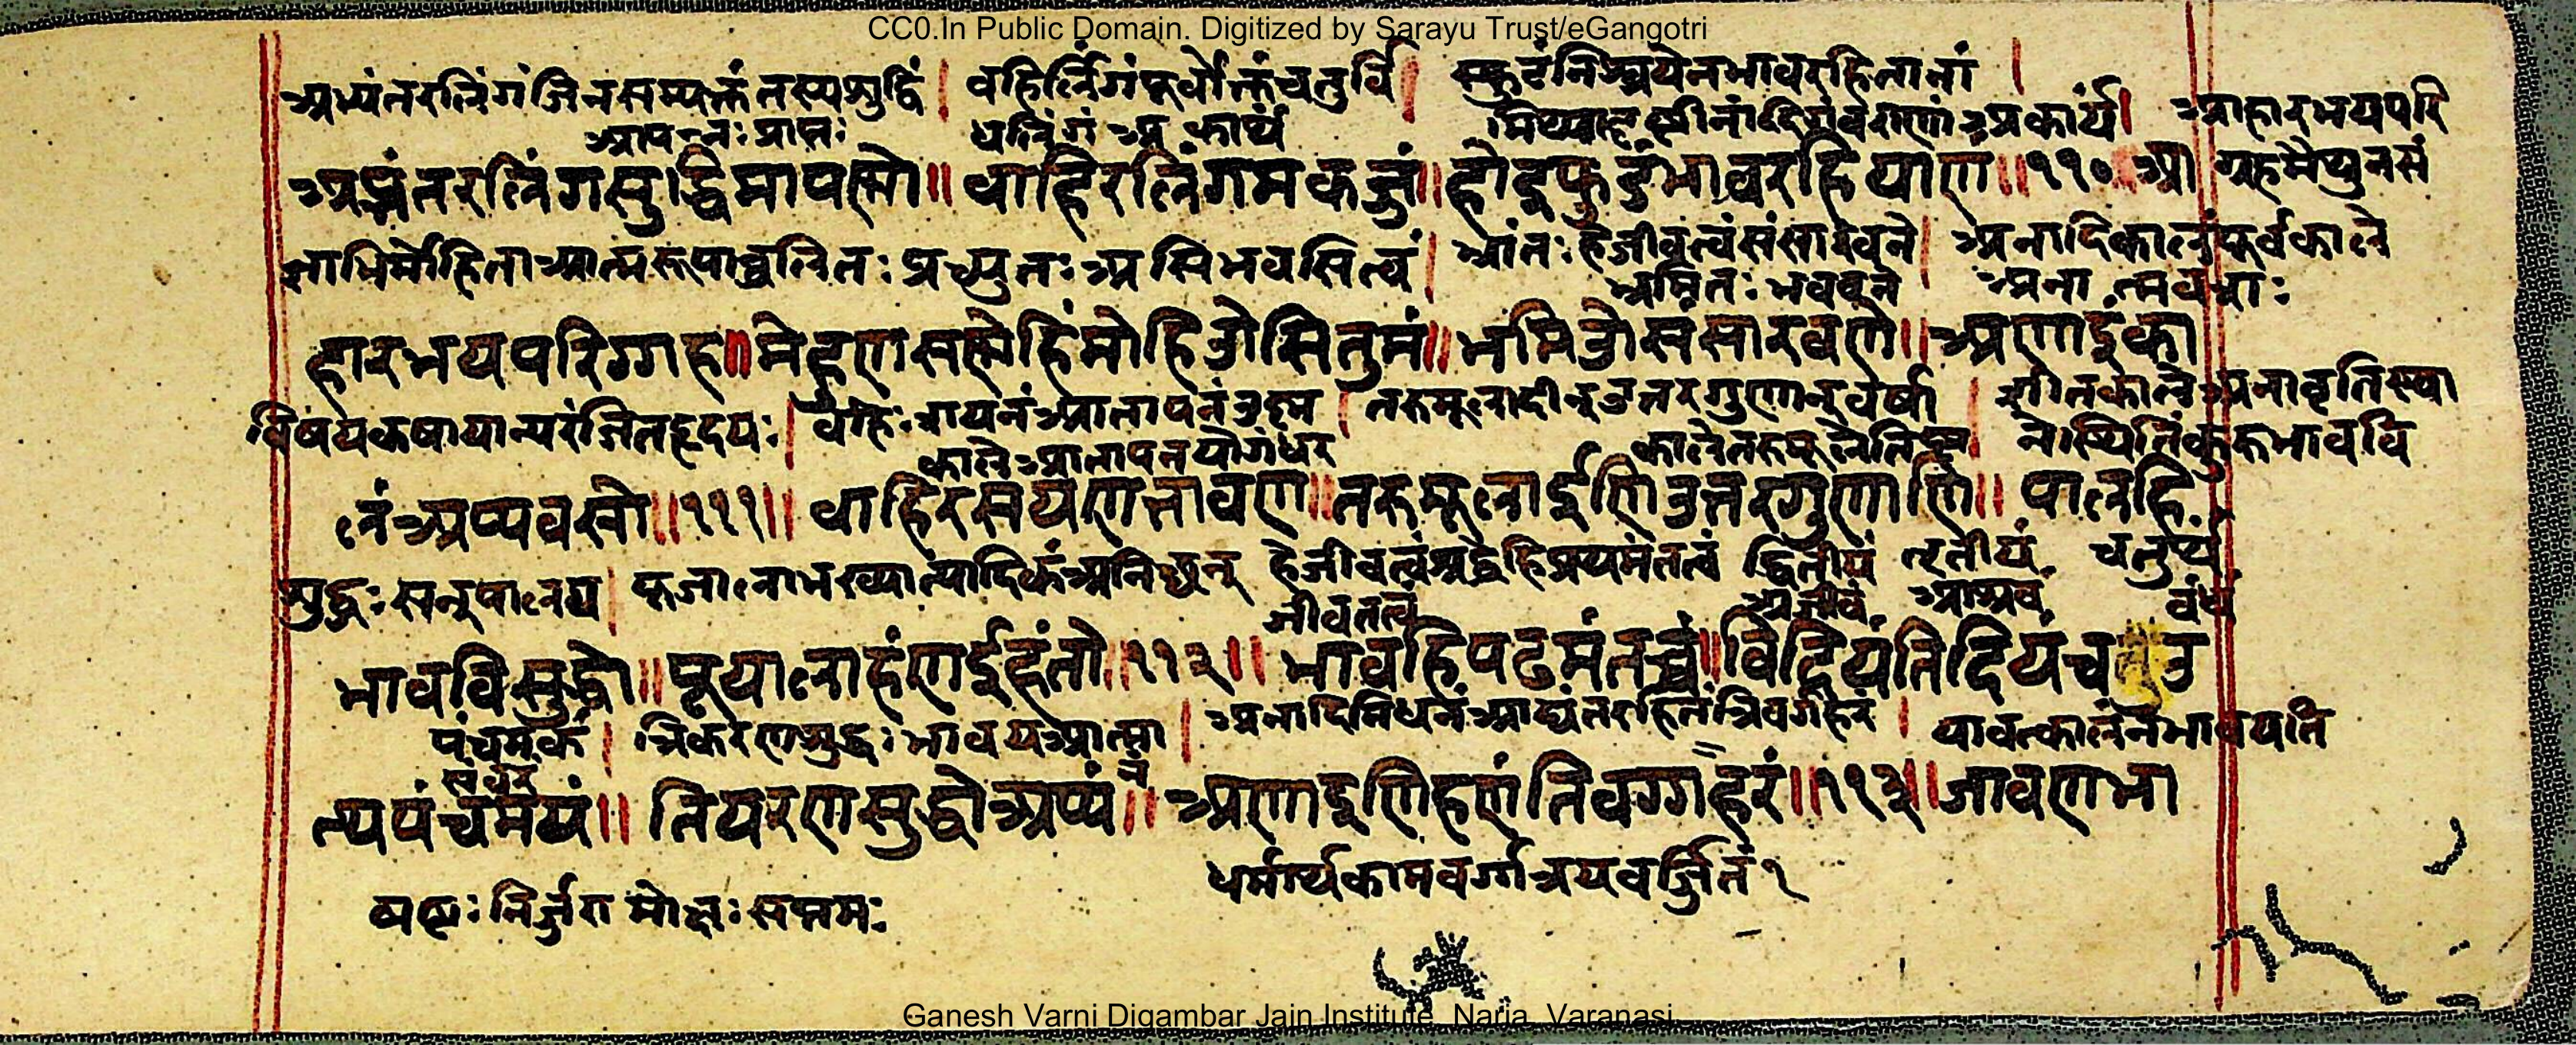 CC0.In Public Domain. Digitized by Sarayu Trust/eGangotri
अभ्यंतरलिंगं जिनसम्यक्तं तस्य शुद्धिं | वहिर्लिंगं पूर्वोक्तं चतुर्वि | स्फुटं निश्चयेन भावरहितानां |
आपन्नः प्राप्तः धलिंगं अकार्यं मिथ्यादृष्टीनां दिगंवराणां अकार्यं | आहारभयपरि
अप्भंतरलिंगसुद्धिमापण्णो ॥ वाहिरलिंगमकज्जं ॥ होइ फुडं भावरहियाण ॥ ११० ॥ आ ग्रहमैथुनसं
ज्ञाभिर्मोहिता आत्मरूपाच्चलितः प्रच्युतः असि भवसि त्वं | भ्रांतः हे जीव त्वं संसारवने | अनादिकालं पूर्वकाले
भ्रमितः भववने अनात्मवशः
हारभयपरिग्गह ॥ मेहुणसण्णेहिं मोहिउोसि तुमं ॥ भमिउो संसारवणे ॥ अणाइंका
विषयकषायान्यरंजितहृदयः | वहिः शयनं आतापनं उष्ण | तरुमूलादीन् उत्तरगुणान् वर्षा | शीतकाले अनावृतिस्था
काले आतापनयोगंधर काले तरुमूले तिष्ट | ने स्थितिं कुरु भाववि
लं अणप्पवसो ॥ १११ ॥ वाहिरसयणत्तावण ॥ तरुमूलाईणि उत्तरगुणाणि ॥ पालहि
शुद्धः सन् पालय | पूजालाभख्यात्यादिकं अनिच्छन् हे जीव त्वं श्रद्धेहि प्रथमं तत्वं द्वितीयं तृतीयं चतुर्थ
जीवतत्वं अजीवं आश्रवं वंधं
भावविसुद्धो ॥ पूयालाहं ण ईहंतो ॥ ११२ ॥ भावहि पढमं तच्चं ॥ विदियं तिदियं च उ
पंचमकं | त्रिकरणशुद्धः भावय आत्मा | अनादिनिधनं आद्यंतरहितं त्रिवर्गहरं | यावत्कालं न भावयति
संवरं न
त्थपंचमयं ॥ तियरणसुद्धो अप्पं ॥ अणाइणिहणं तिवग्गहरं ॥ ११३ ॥ जाव ण भा
धर्मार्थकामवर्गत्रयवर्जितं १
षष्टः निर्जरा मोक्षः सप्तमः
Ganesh Varni Digambar Jain Institute, Naria, Varanasi